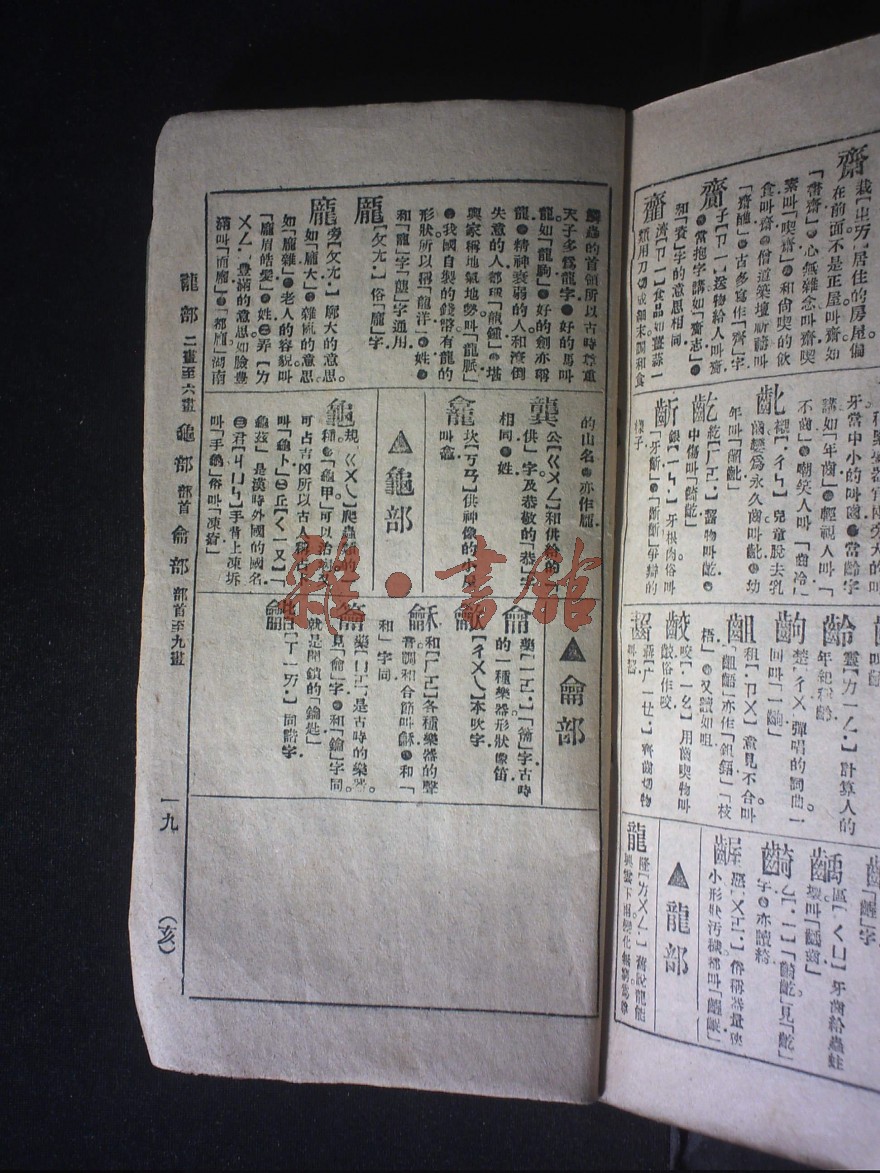 齋
在前面不是正屋叫齋如
「書齋」●心無雜念叫齋喫
素叫「喫齋」●和尚喫的飲
食叫齋●僧道築壇祈禱叫
「齋醮」●古多寫作「齊」字
齎
子【ㄗㄧ】送物給人叫齎
●當抱字講如「齎志」●
和「資」字的意思相同
齏
濟【ㄗㄧ】食品如薑蒜一
不齒」●嘲笑人叫「齒冷」
齔
齒變爲永久齒叫齔●幼
年叫「齠齔」
齕
中傷叫「齮齕」
齗
齦【ㄧㄣ】牙根肉俗叫
「牙齗」●「齗齗」爭辯的
樣子
齡
靈【ㄌㄧㄥ】計算人的
年紀稱齡
齣
楚【ㄔㄨ】彈唱的詞曲一
回叫「一齣」
齟
租【ㄗㄨ】意見不合叫
「齟齬」亦作「鉏鋙」「枝
梧」●又讀如咀
齩
咬【ㄧㄠ】用齒喫物叫
齩俗作咬
齧
區【ㄑㄩ】牙齒給蟲蛀
壞叫「齲齒」
齮
乙【ㄧ】「齮齕」見「齕」
字●亦讀綺
齷
小形狀汚穢都叫「齷齪」
▲龍部
龍
隆【ㄌㄨㄥ】舊說龍能
興雲下雨變化無窮爲鱗
鱗蟲的首領所以古時尊重
天子多爲龍字●好的馬叫
龍如「龍駒」●好的劍亦稱
龍●精神衰弱的人和潦倒
失意的人都叫「龍鍾」●堪
輿家稱地氣地勢叫「龍脈」
●我國自製的錢幣有龍的
形狀所以稱「龍洋」●姓●
和「寵」字「壟」字通用
龎
【ㄆㄤ】俗「龐」字
龐
旁【ㄆㄤ】廓大的意思
如「龐大」●雜亂的意思
如「龐雜」●老人的容貌叫
「龐眉皓髮」●姓㊁弄【ㄌ
ㄨㄥ】豐滿的意思如臉豐
滿叫「面龐」●「都龐」湖南
的山名●亦作龎
龔
公【ㄍㄨㄥ】和供給的「
供」字及恭敬的「恭」字
相同●姓
龕
坎【ㄎㄢ】供神像的小屋
叫龕
▲龜部
龜
規【ㄍㄨㄟ】爬蟲類的一
種●「龜甲」可以治病又
可占吉凶所以古人稱占卜
叫「龜卜」㊁丘【ㄑㄧㄡ】「
龜茲」是漢時外國的國名
㊂君【ㄐㄩㄣ】手背上凍坼
叫「手龜」俗叫「凍瘡」
▲龠部
龠
藥【ㄧㄛ】「籥」字古時
的一種樂器形狀像笛
龡
【ㄔㄨㄟ】本吹字
龢
和【ㄏㄛ】各種樂器的聲
音調和合節叫龢●和「
和」字同
籥
藥【ㄩㄛ】是古時的樂器
見「龠」字●和「鑰」字同
就是開鎖的「鑰匙」
龤
皆【ㄒㄧㄞ】同諧字
龍部 二畫至六畫 龜部 部首 龠部 部首至九畫
一九
(亥)
雜·書館